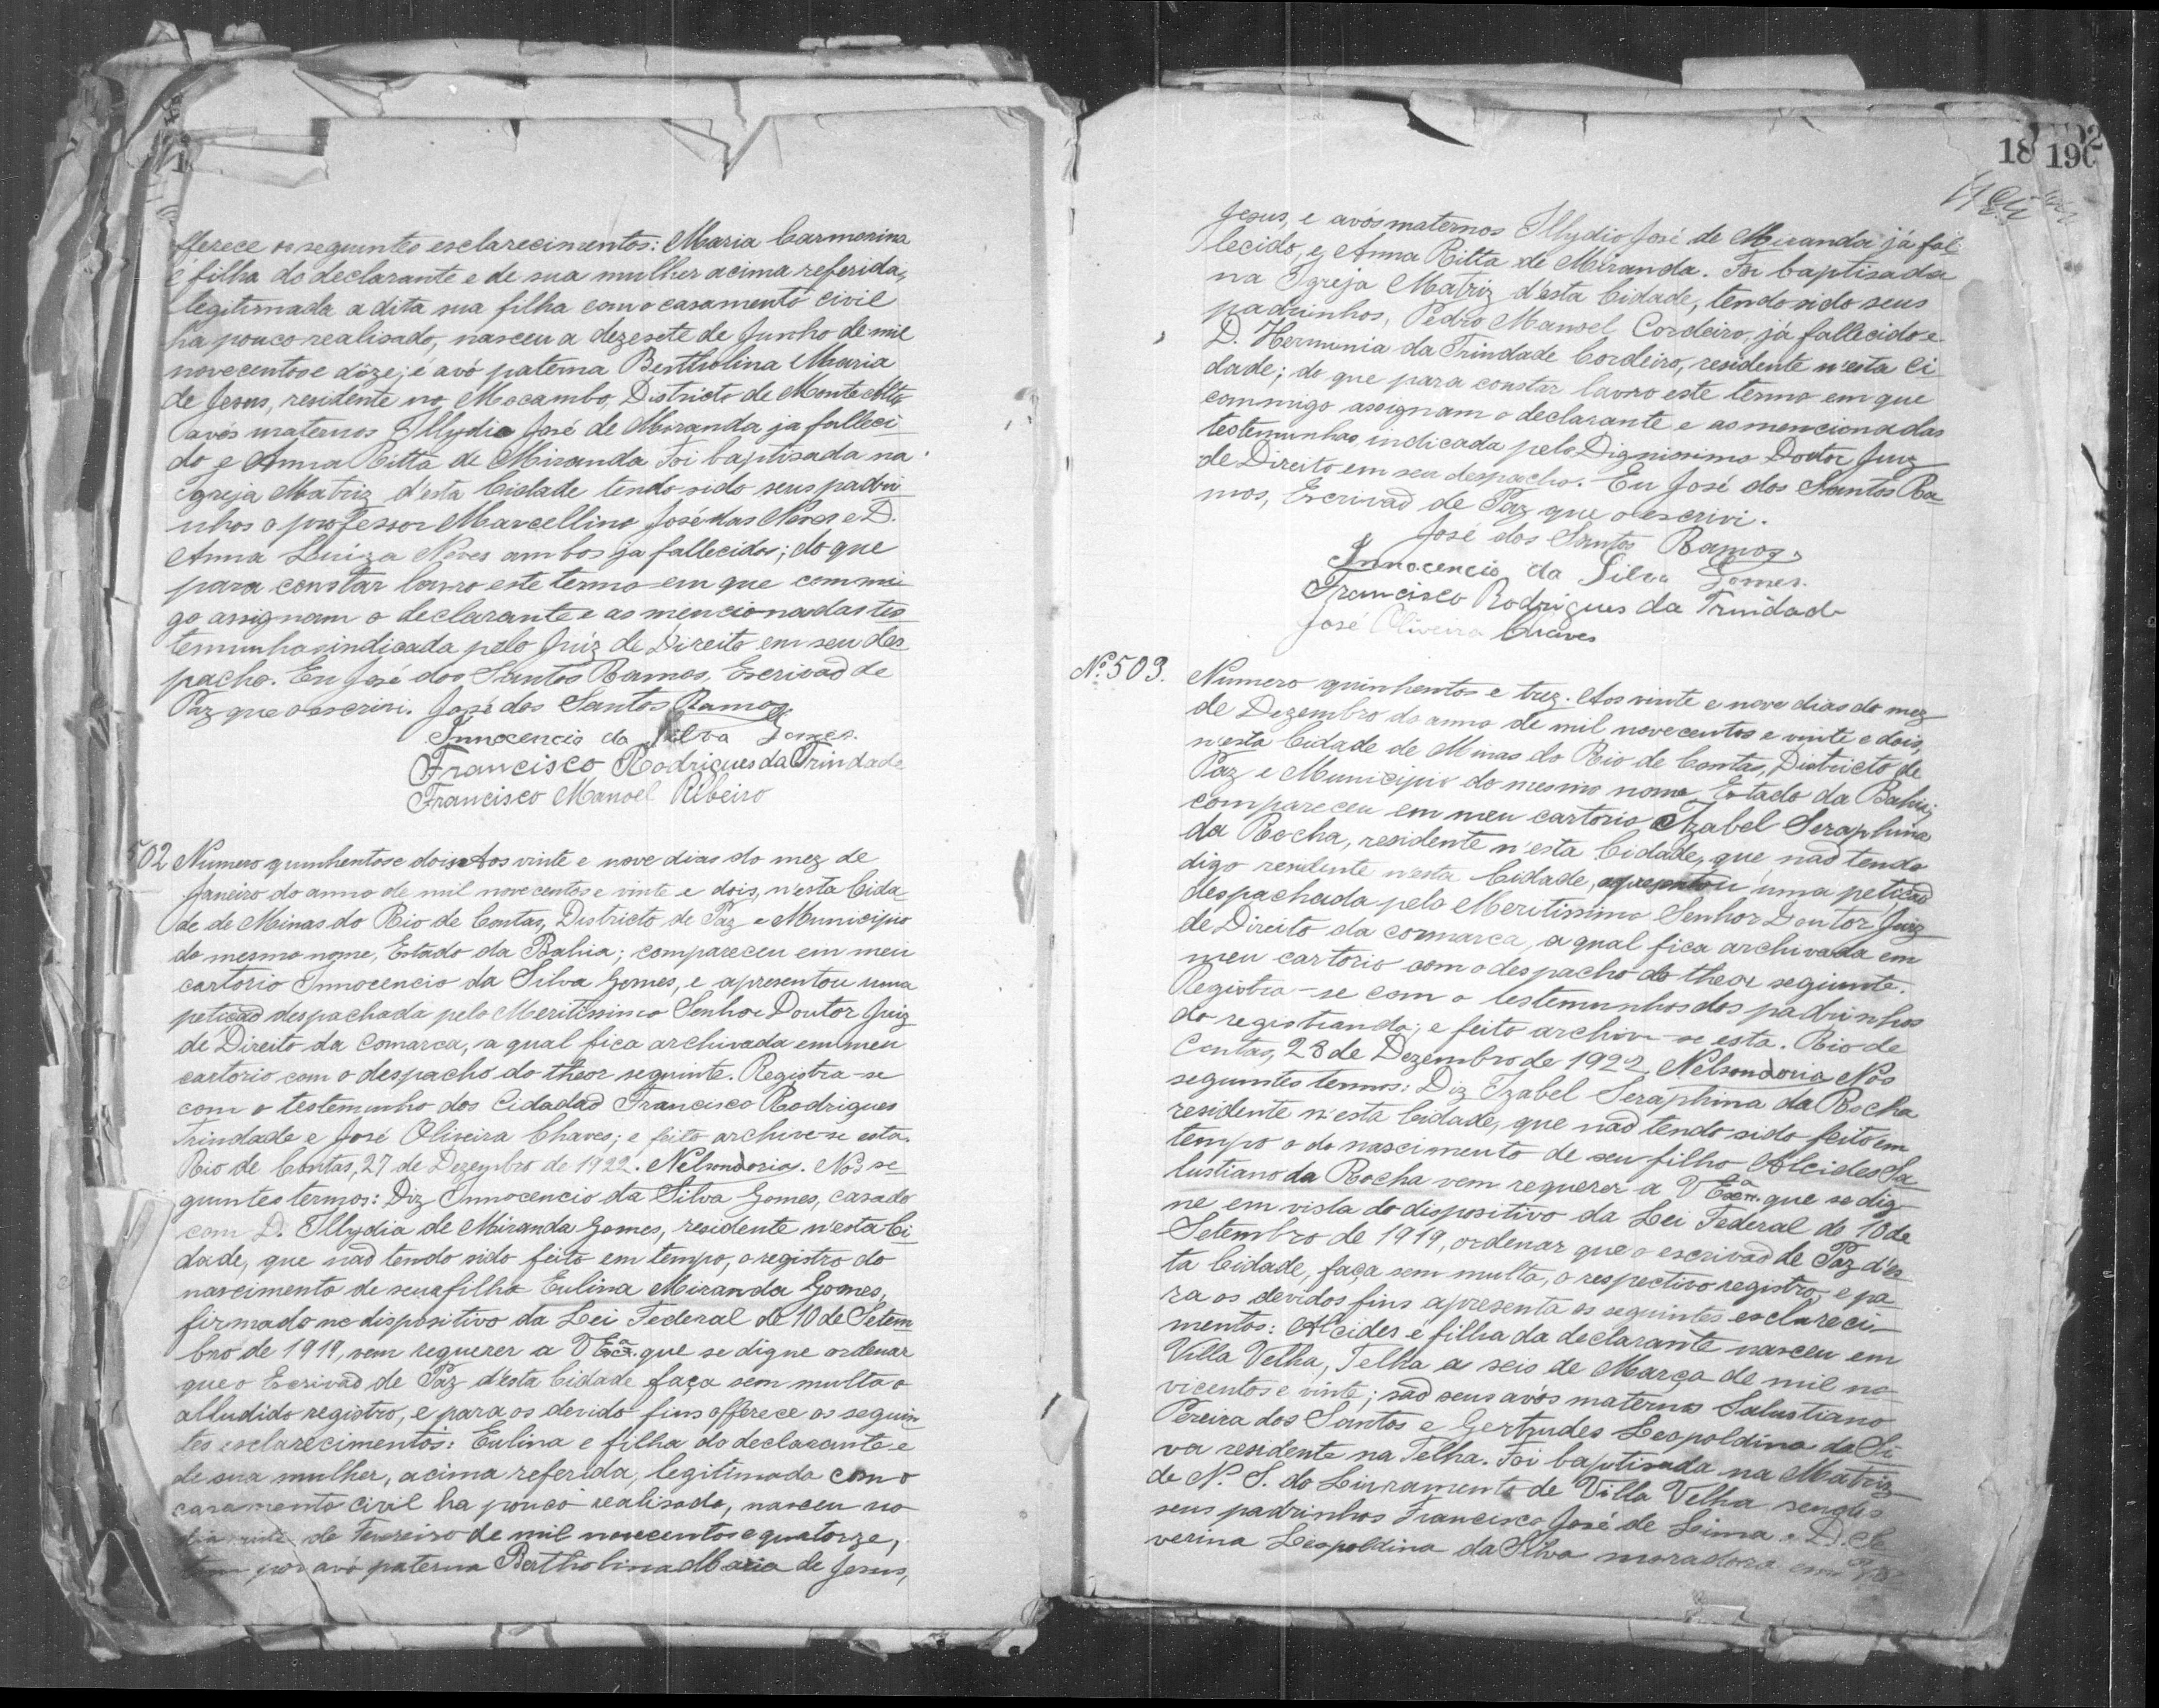 fferece os seguintes esclarecimentos: Maria Carmerina
é filha do declarante e de sua mulher acima referida,
legitimada a dita sua filha com o casamento civil
ha pouco realisado, nasceu a dezesete de Junho de mil
novecentos e dôze; é avó paterna Bertholina Maria
de Jesus, residente no Mocambo, Districto de Monte Alto,
avós maternos Illydio José de Miranda ja falleci
do e Anna Ritta de Miranda Foi baptisada na
Igreja Matriz d'esta Cidade tendo sido seus padri
nhos o professor Marcellino José das Neves e D.
Anna Luiza Neves ambos ja fallecidos; do que
para constar lavro este termo em que commi
go assignam o declarante e as mencionadas tes
temunhas indicada pelo Juiz de Direito em seu des
pacho. Eu José dos Santos Ramos, Escrivaõ de
Paz que o escrivi. José dos Santos Ramos.
Innocencio da Silva Gomes.
Francisco Rodrigues da Trindade
Francisco Manoel Ribeiro
502 Numero quinhentos e dois Aos vinte e nove dias do mez de
Janeiro do anno de mil novecentos e vinte e dois, n'esta Cida
de de Minas do Rio de Contas, Districto de Paz e Municipio
do mesmo nome, Estado da Bahia; compareceu em meu
cartorio Innocencio da Silva Gomes, e apresentou uma
petiçaõ despachada pelo Meritissimo Senhor Doutor Juiz
de Direito da Comarca, a qual fica archivada em meu
cartorio com o despacho do theor seguinte. Registra-se
com o testemunho dos Cidadaõ Francisco Rodrigues
Trindade e José Oliveira Chaves; e feito archive-se esta.
Rio de Contas, 27 de Dezembro de 1922. Nelsondoria. Nos se-
guintes termos: Diz Innocencio da Silva Gomes, casado
com D. Illydia de Miranda Gomes, residente n'esta Ci
dade, que naõ tendo sido feito em tempo, o registro do
nascimento de sua filha Eulina Miranda Gomes,
firmado no dispositivo da Lei Federal de 10 de Setem
bro de 1919, vem requerer a V Exª. que se digne ordenar
que o Escrivaõ de Paz d'esta Cidade faça sem multa o
alludido registro, e para os devido fins offerece os seguin
tes esclarecimentos: Eulina e filha do declarante e
de sua mulher, acima referida, legitimada com o
casamento civil ha pouco realisado, nasceu no
dia vinte de Fevereiro de mil novecentos e quatorze,
tem por avó paterna Bertholina Maria de Jesus,
18 190
Jesus, e avós maternos Illydio José de Miranda já fal
lecido, e Anna Ritta de Miranda. Foi baptisada
na Igreja Matriz d'esta Cidade, tendo sido seus
padrinhos, Pedro Manoel Cordeiro, já fallecido e
D. Herminia da Trindade Cordeiro, residente n'esta Ci
dade; do que para constar lavro este termo em que
commigo assignam o declarante e as mencionadas
testemunhas indicada pelo Dignissimo Doutor Juiz
de Direito em seu despacho. Eu José dos Santos Ra
mos, Escrivaõ de Paz que o escrivi.
José dos Santos Ramos.
Innocencio da Silva Gomes.
Francisco Rodrigues da Trindade
José Oliveira Chaves
Nº 503. Numero quinhentos e trez. Aos vinte e nove dias do mez
de Dezembro do anno de mil novecentos e vinte e dois,
n'esta Cidade de Minas do Rio de Contas, Districto de
Paz e Municipio do mesmo nome Estado da Bahia;
compareceu em meu cartorio Izabel Seraphina
da Rocha, residente n'esta Cidade, que naõ tendo
digo residente n'esta Cidade, apresentou uma petiçaõ
despachada pelo Meritissimo Senhor Doutor Juiz
de Direito da comarca, a qual fica archivada em
meu cartorio com o despacho do theor seguinte.
Registra-se com o testemunhos dos padrinhos
do registrando; e feito archive-se esta. Rio de
Contas, 28 de Dezembro de 1922. Nelsondoria Nos
seguintes termos: Diz Izabel Seraphina da Rocha
residente n'esta Cidade, que naõ tendo sido feito em
tempo o do nascimento de seu filho Alcides Sa
lustiano da Rocha vem requerer a V Exª. que se dig
ne em vista do dispositivo da Lei Federal de 10 de
Setembro de 1919, ordenar que o escrivaõ de Paz d'es
ta Cidade, faça sem multa, o respectivo registro, e pa
ra os devidos fins apresenta os seguintes esclareci-
mentos: Alcides é filha da declarante nasceu em
Villa Velha, Telha a seis de Março de mil no
vicentos e vinte; saõ seus avós maternos Salustiano
Pereira dos Santos e Gertrudes Leopoldina da Sil
va residente na Telha. Foi baptisada na Matriz
de N. S. do Livramento de Villa Velha sendo
seus padrinhos Francisco José de Lima e D. Se
verina Leopoldina da Silva moradora em